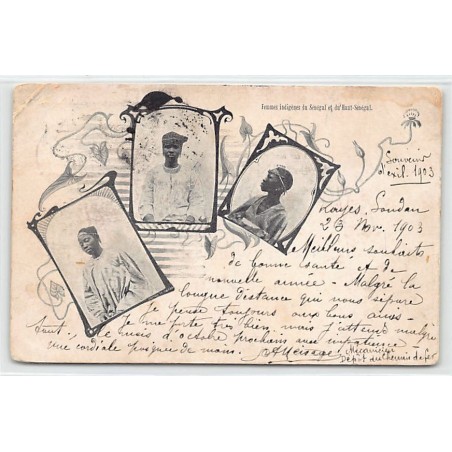 Femmes indigènes du Sénégal et du Haut-Sénégal.
Souvenir
d'exil. 1903
Kayes, Soudan
23 Nov. 1903
Meilleurs souhaits
de bonne santé et de
nouvelle année - Malgré la
longue distance qui nous sépare
Je pense toujours aux bons amis -
Je me porte très bien, mais j'attends malgré
tout le mois d'octobre prochain avec impatience
Une cordiale poignée de mains.
Mécanicien
Dépôt du chemin de fer